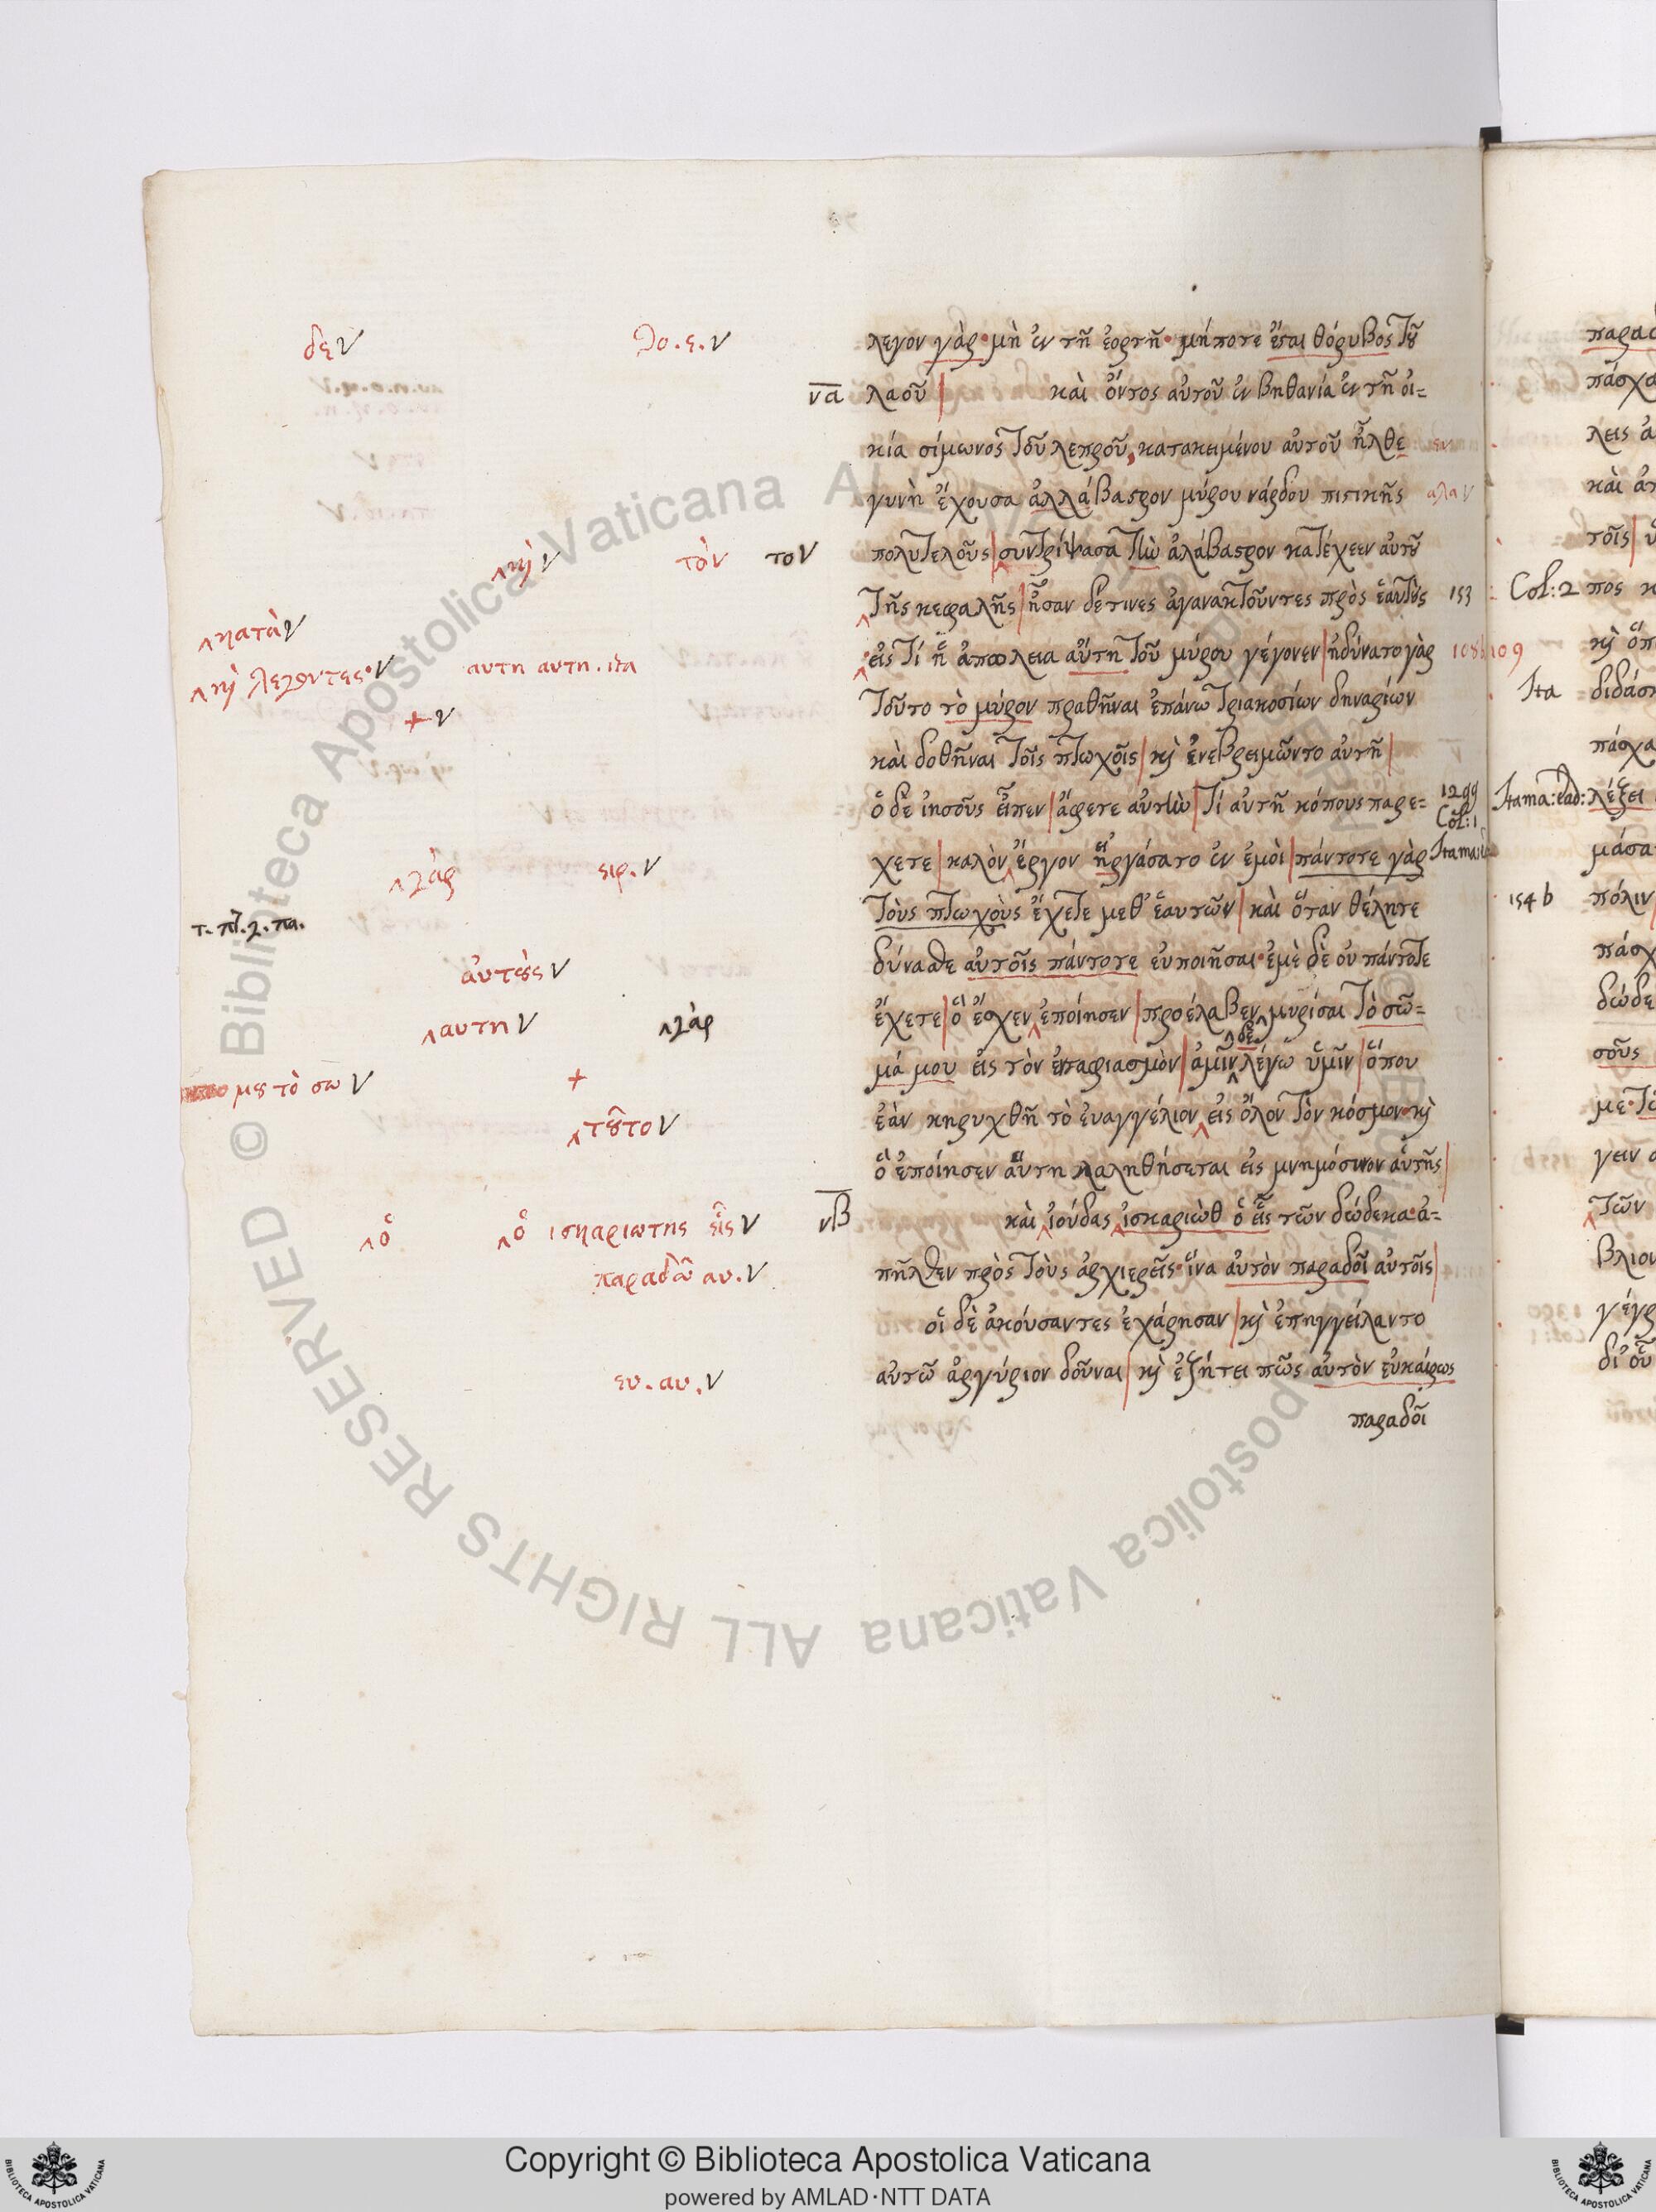 δε ν
θο.ε.ν
λεγον γὰρ· μὴ ἐν τῆ ἑορτῆ· μήποτε ἔσται θόρυβος τοῦ
να λαοῦ | καὶ ὄντος αὐτοῦ ἐν βηθανία ἐν τῆ οἰ=
κία σίμωνος τοῦ λεπροῦ, κατακειμένου αὐτοῦ ἦλθε
γυνὴ ἔχουσα ἀλλάβαστρον μύρου νάρδου πιστικῆς αλα ν
καὶ ν τὸν τον
πολυτελοῦς | συντρίψασα τὴν ἀλάβαστρον κατέχεεν αὐτοῦ
τῆς κεφαλῆς | ἦσαν δέ τινες ἀγανακτοῦντες πρὸς ἑαυτοὺς 153
κατὰ ν
καὶ λέγοντες· ν αυτη αυτη. ita
εἰς τί ἡ ἀπώλεια αὕτη τοῦ μύρου γέγονεν | ἠδύνατο γὰρ
+ ν
τοῦτο τὸ μύρον πραθῆναι ἐπάνω τριακοσίων δηναρίων
καὶ δοθῆναι τοῖς πτωχοῖς | καὶ ἐνεβριμῶντο αὐτῆ |
ὁ δὲ ἰησοῦς εἶπεν | ἄφετε αὐτὴν | τί αὐτῆ κόπους παρε= 1299
Col: 1
γὰρ ειρ. ν
χετε | καλὸν ἔργον ἠργάσατο ἐν ἐμοὶ | πάντοτε γὰρ
τ. πτ. γ. πα.
τοὺς πτωχοὺς ἔχετε μεθ' ἑαυτῶν | καὶ ὅταν θέλητε
αὐτοὺς ν
δύνασθε αὐτοῖς πάντοτε εὐποιῆσαι· ἐμὲ δὲ οὐ πάντοτε
αυτη ν γὰρ
ἔχετε | ὃ ἔσχεν ἐποίησεν | προέλαβεν μυρίσαι τὸ σῶ=
δὲ
με τὸ σω ν +
μά μου εἰς τὸν ἐνταφιασμὸν | ἀμὴν λέγω ὑμῖν | ὅπου
τοῦτο ν
ἐὰν κηρυχθῆ τὸ εὐαγγέλιον εἰς ὅλον τὸν κόσμον· καὶ
ὃ ἐποίησεν αὕτη λαληθήσεται εἰς μνημόσυνον αὐτῆς |
ὁ ὁ ισκαριωτης εἷς ν
νβ καὶ ἰούδας ἰσκαριὼθ ὁ εἷς τῶν δώδεκα· ἀ=
παραδῶ αυ. ν
πῆλθεν πρὸς τοὺς ἀρχιερεῖς· ἵνα αὐτὸν παραδοῖ αὐτοῖς |
οἱ δὲ ἀκούσαντες ἐχάρησαν | καὶ ἐπηγγείλαντο
ευ. αυ. ν
αὐτῶ ἀργύριον δοῦναι | καὶ ἐζήτει πῶς αὐτὸν εὐκαίρως
παραδοῖ
πάσχα
λεις
Col: 2 πος
Ita διδάσκ
πάσχα
λέξει
μάσα
154 b πόλιν
πάσχ
δώδε
σοῦς
γειν
τῶν
βλίον
γέγρ
δι' οὗ
© Biblioteca Apostolica Vaticana ALL RIGHTS RESERVED
Copyright © Biblioteca Apostolica Vaticana
powered by AMLAD·NTT DATA
BIBLIOTECA APOSTOLICA VATICANA
BIBLIOTECA APOSTOLICA VATICANA